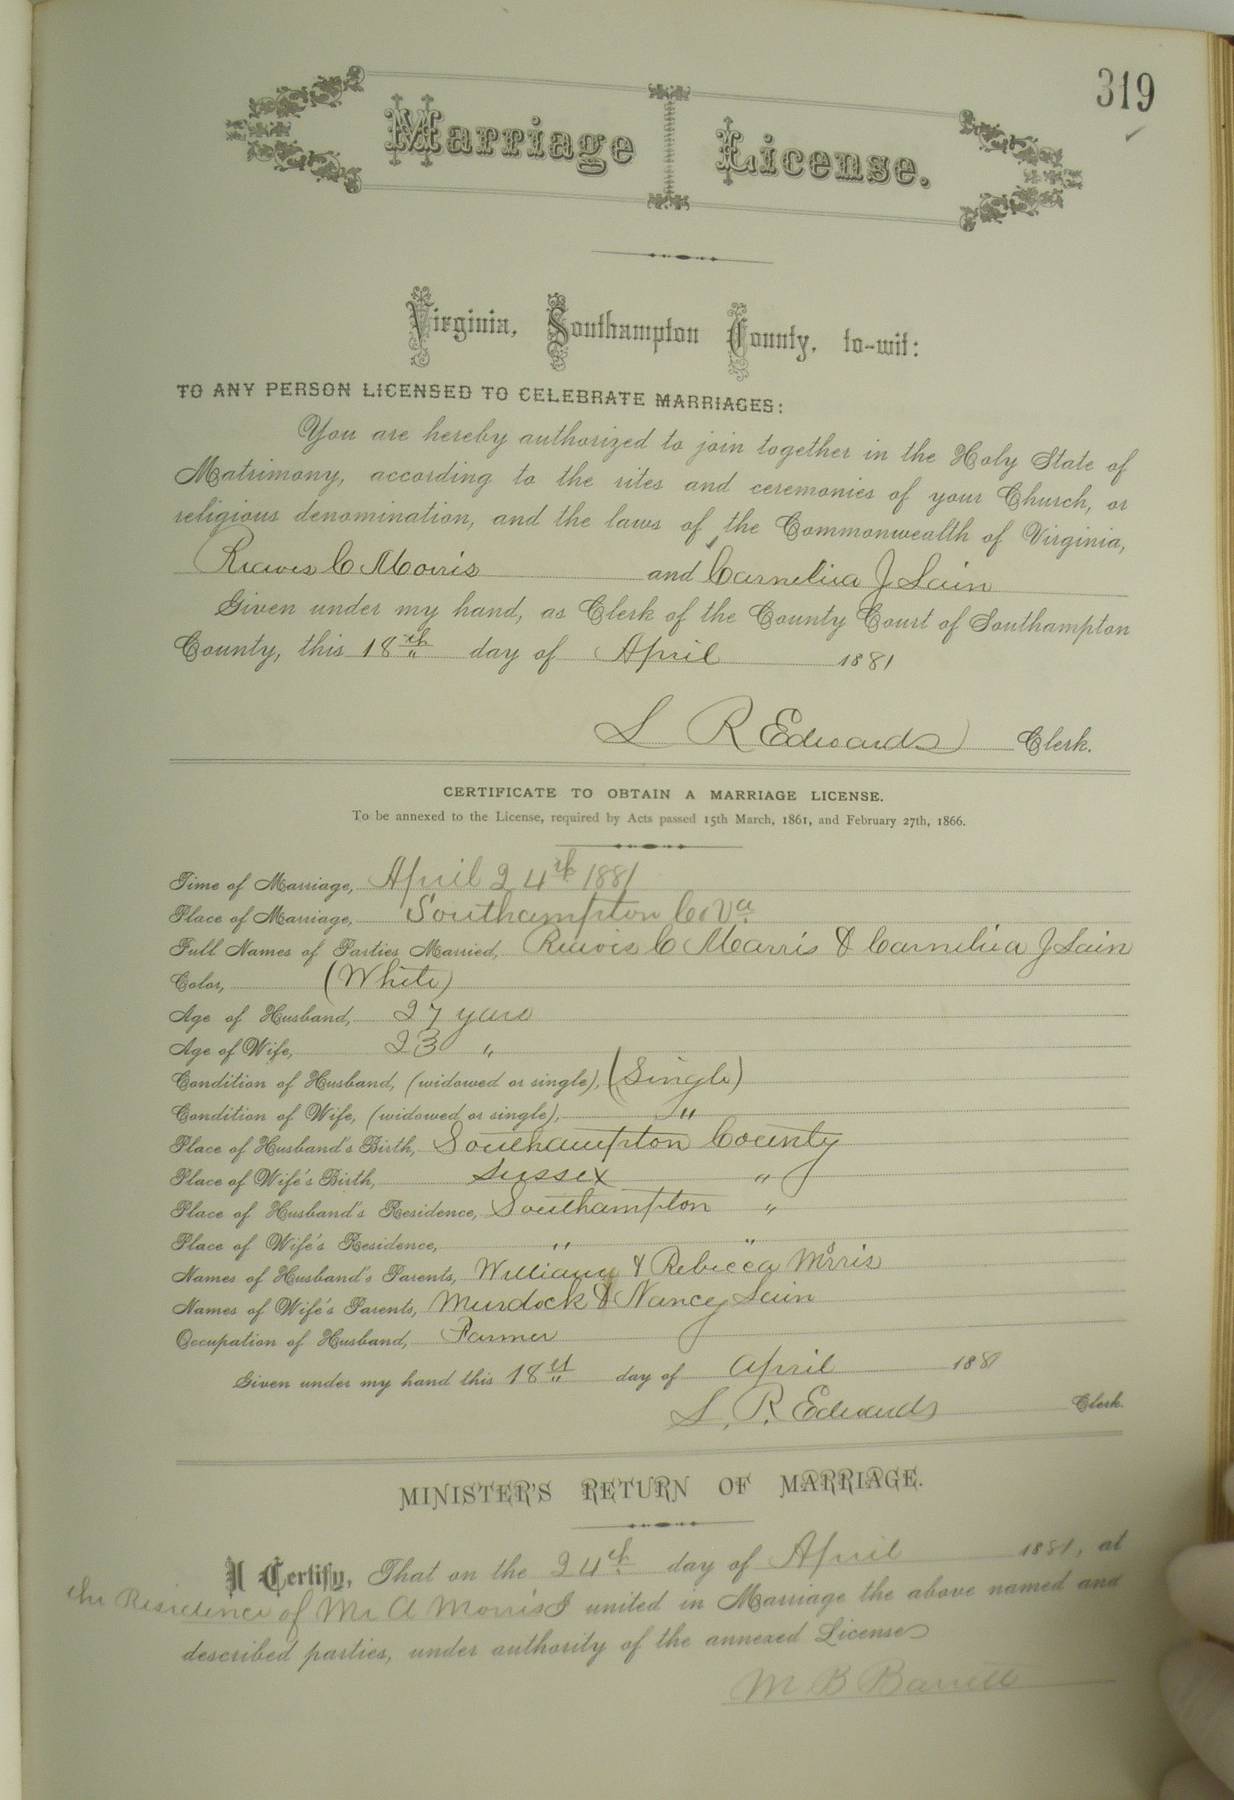 319
Marriage License.
Virginia, Southampton County, to-wit:
TO ANY PERSON LICENSED TO CELEBRATE MARRIAGES:
You are hereby authorized to join together in the Holy State of
Matrimony, according to the rites and ceremonies of your Church, or
religious denomination, and the laws of the Commonwealth of Virginia,
C Morris and Carneliua J Lain
Given under my hand, as Clerk of the County Court of Southampton
County, this 18th day of April 1881
L R Edwards Clerk.
CERTIFICATE TO OBTAIN A MARRIAGE LICENSE.
To be annexed to the License, required by Acts passed 15th March, 1861, and February 27th, 1866.
Time of Marriage, April 24th 1881
Place of Marriage, Southampton Co Va
Full Names of Parties Married, C Marris & Carneliua J Lain
Color, (White)
Age of Husband, 27 years
Age of Wife, 23 "
Condition of Husband, (widowed or single), (Single)
Condition of Wife, (widowed or single), "
Place of Husband's Birth, Southampton County
Place of Wife's Birth, Sussex "
Place of Husband's Residence, Southampton "
Place of Wife's Residence, " "
Names of Husband's Parents, William & Rebecca Morris
Names of Wife's Parents, Murdock & Nancy Lain
Occupation of Husband, Farmer
Given under my hand this 18th day of April 1881
L. R. Edwards Clerk.
MINISTER'S RETURN OF MARRIAGE.
I Certify, That on the 24th day of April 1881, at
the Residence of Mr A Morris I united in Marriage the above named and
described parties, under authority of the annexed License
M B Barrett